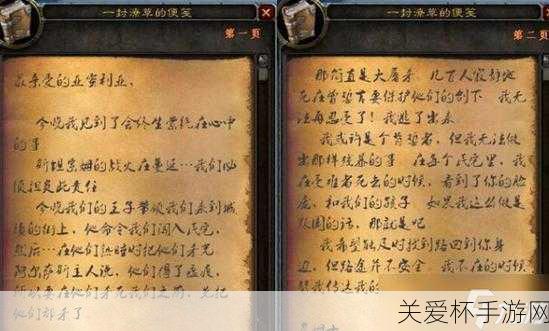 一封潦草的便笺
第一页
最亲爱的亚蜜利亚，
今晚我见到了会终生萦绕在心中
的事
斯坦索姆的战火在蔓延…我们必
须担负此责任
今晚我们的王子带领我们来到城
镇的街上，他命令我们闯入民宅，
然后…在他们熟睡时把他们杀死
阿尔萨斯主人说，他们得了瘟疫，
所以要在他们杀死我们之前，先把
他们都杀了
一封潦草的便笺
第二页
那简直是大屠杀，几百人寂静地
死在曾誓言要保护他们的剑下 我无
法再忍受了！我逃了出来
我或许是个背叛者，但我无法做
出那样残暴的事 在每个民宅里，我
在受难者死去的时候，看到了你的脸
庞，和我们的孩子 如果我这么做是
叛国的话，那就是吧
我希望能及时找到路回到你身
边，但路途并不安全 我不在的时候，
替我传达我的
关爱杯手游网